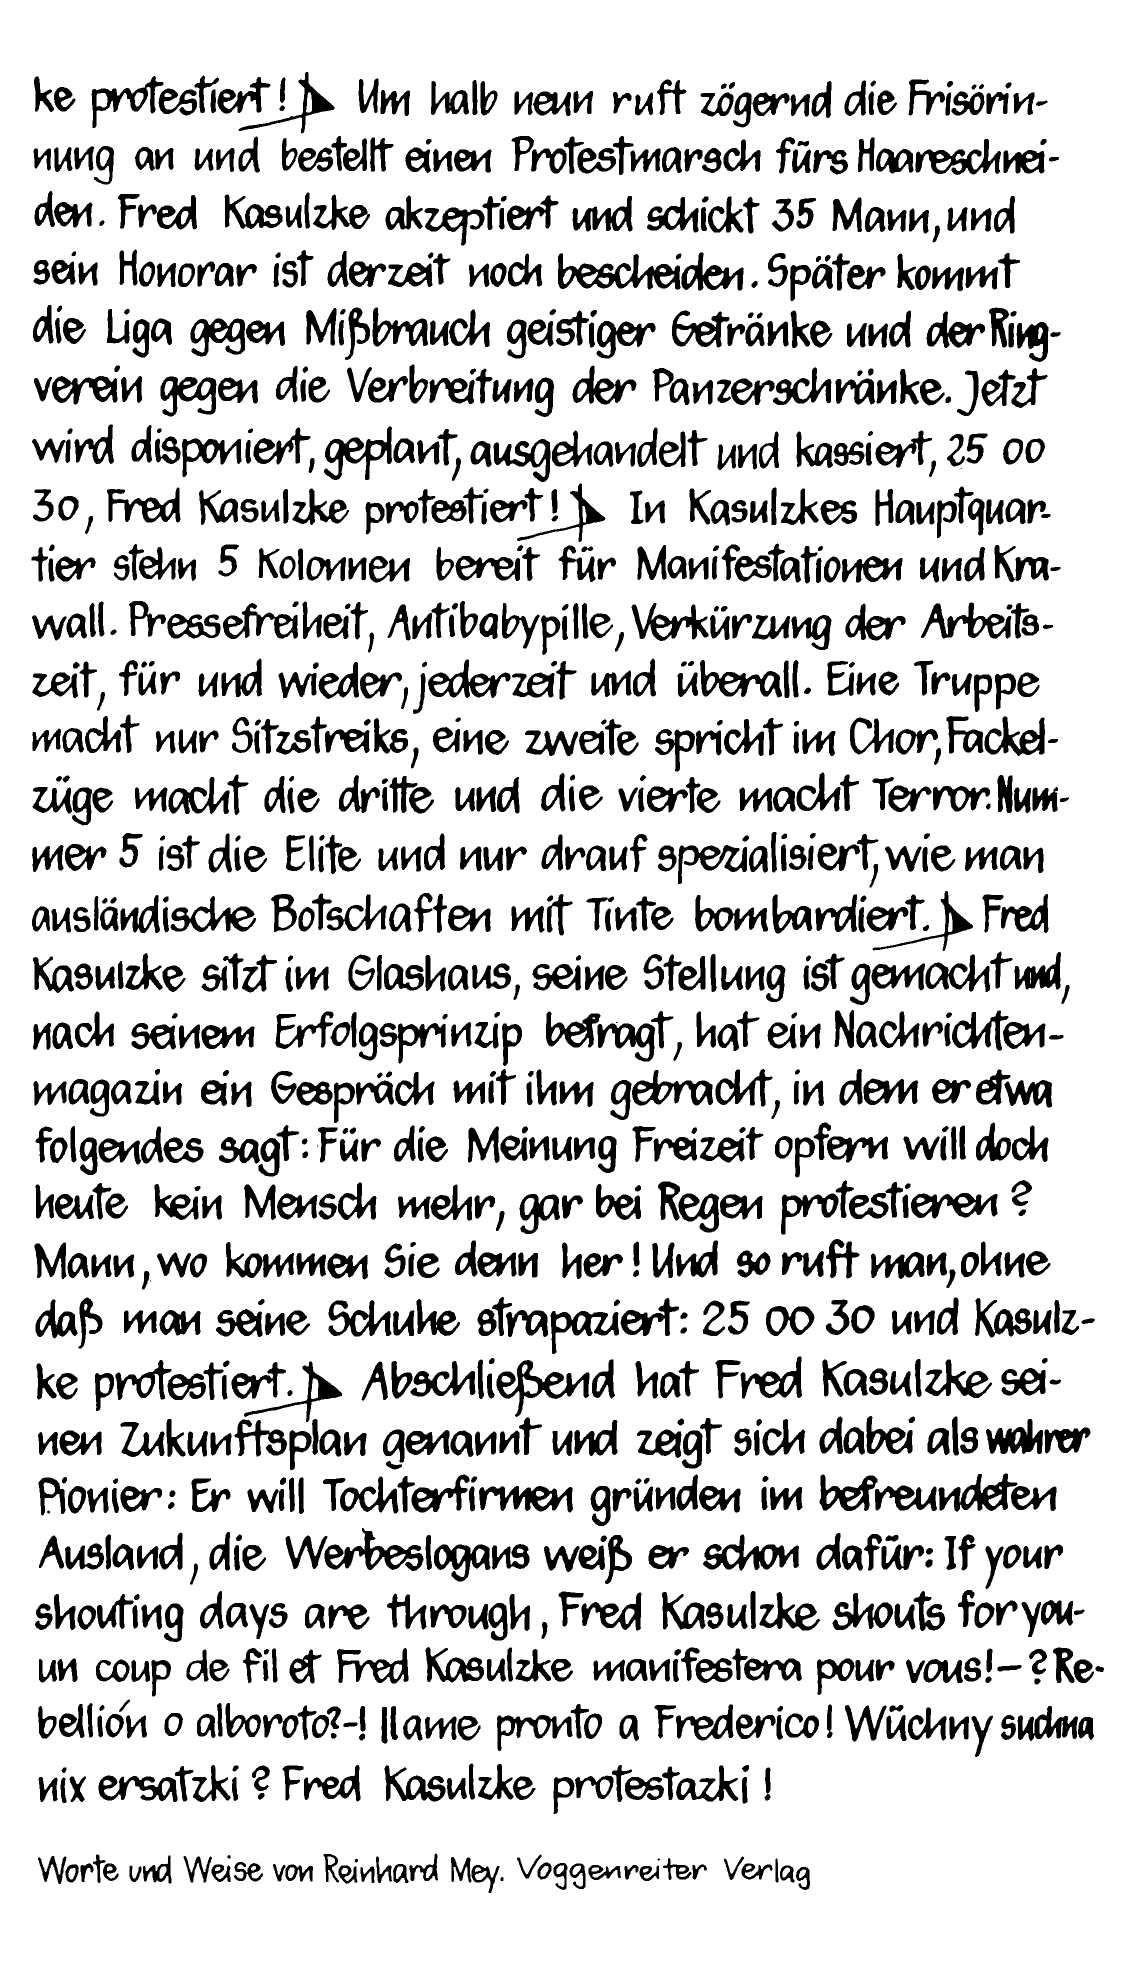 ke protestiert! Um halb neun ruft zögernd die Frisörin-
nung an und bestellt einen Protestmarsch fürs Haareschnei-
den. Fred Kasulzke akzeptiert und schickt 35 Mann, und
sein Honorar ist derzeit noch bescheiden. Später kommt
die Liga gegen Mißbrauch geistiger Getränke und der Ring-
verein gegen die Verbreitung der Panzerschränke. Jetzt
wird disponiert, geplant, ausgehandelt und kassiert, 25 00
30, Fred Kasulzke protestiert! In Kasulzkes Hauptquar-
tier stehn 5 Kolonnen bereit für Manifestationen und Kra-
wall. Pressefreiheit, Antibabypille, Verkürzung der Arbeits-
zeit, für und wieder, jederzeit und überall. Eine Truppe
macht nur Sitzstreiks, eine zweite spricht im Chor, Fackel-
züge macht die dritte und die vierte macht Terror. Num-
mer 5 ist die Elite und nur drauf spezialisiert, wie man
ausländische Botschaften mit Tinte bombardiert. Fred
Kasulzke sitzt im Glashaus, seine Stellung ist gemacht und,
nach seinem Erfolgsprinzip befragt, hat ein Nachrichten-
magazin ein Gespräch mit ihm gebracht, in dem er etwa
folgendes sagt: Für die Meinung Freizeit opfern will doch
heute kein Mensch mehr, gar bei Regen protestieren?
Mann, wo kommen Sie denn her! Und so ruft man, ohne
daß man seine Schuhe strapaziert: 25 00 30 und Kasulz-
ke protestiert. Abschließend hat Fred Kasulzke sei-
nen Zukunftsplan genannt und zeigt sich dabei als wahrer
Pionier: Er will Tochterfirmen gründen im befreundeten
Ausland, die Werbeslogans weiß er schon dafür: If your
shouting days are through, Fred Kasulzke shouts for you-
un coup de fil et Fred Kasulzke manifestera pour vous!-? Re-
bellión o alboroto?-! llame pronto a Frederico! Wüchny suchma
nix ersatzki? Fred Kasulzke protestazki!
Worte und Weise von Reinhard Mey. Voggenreiter Verlag